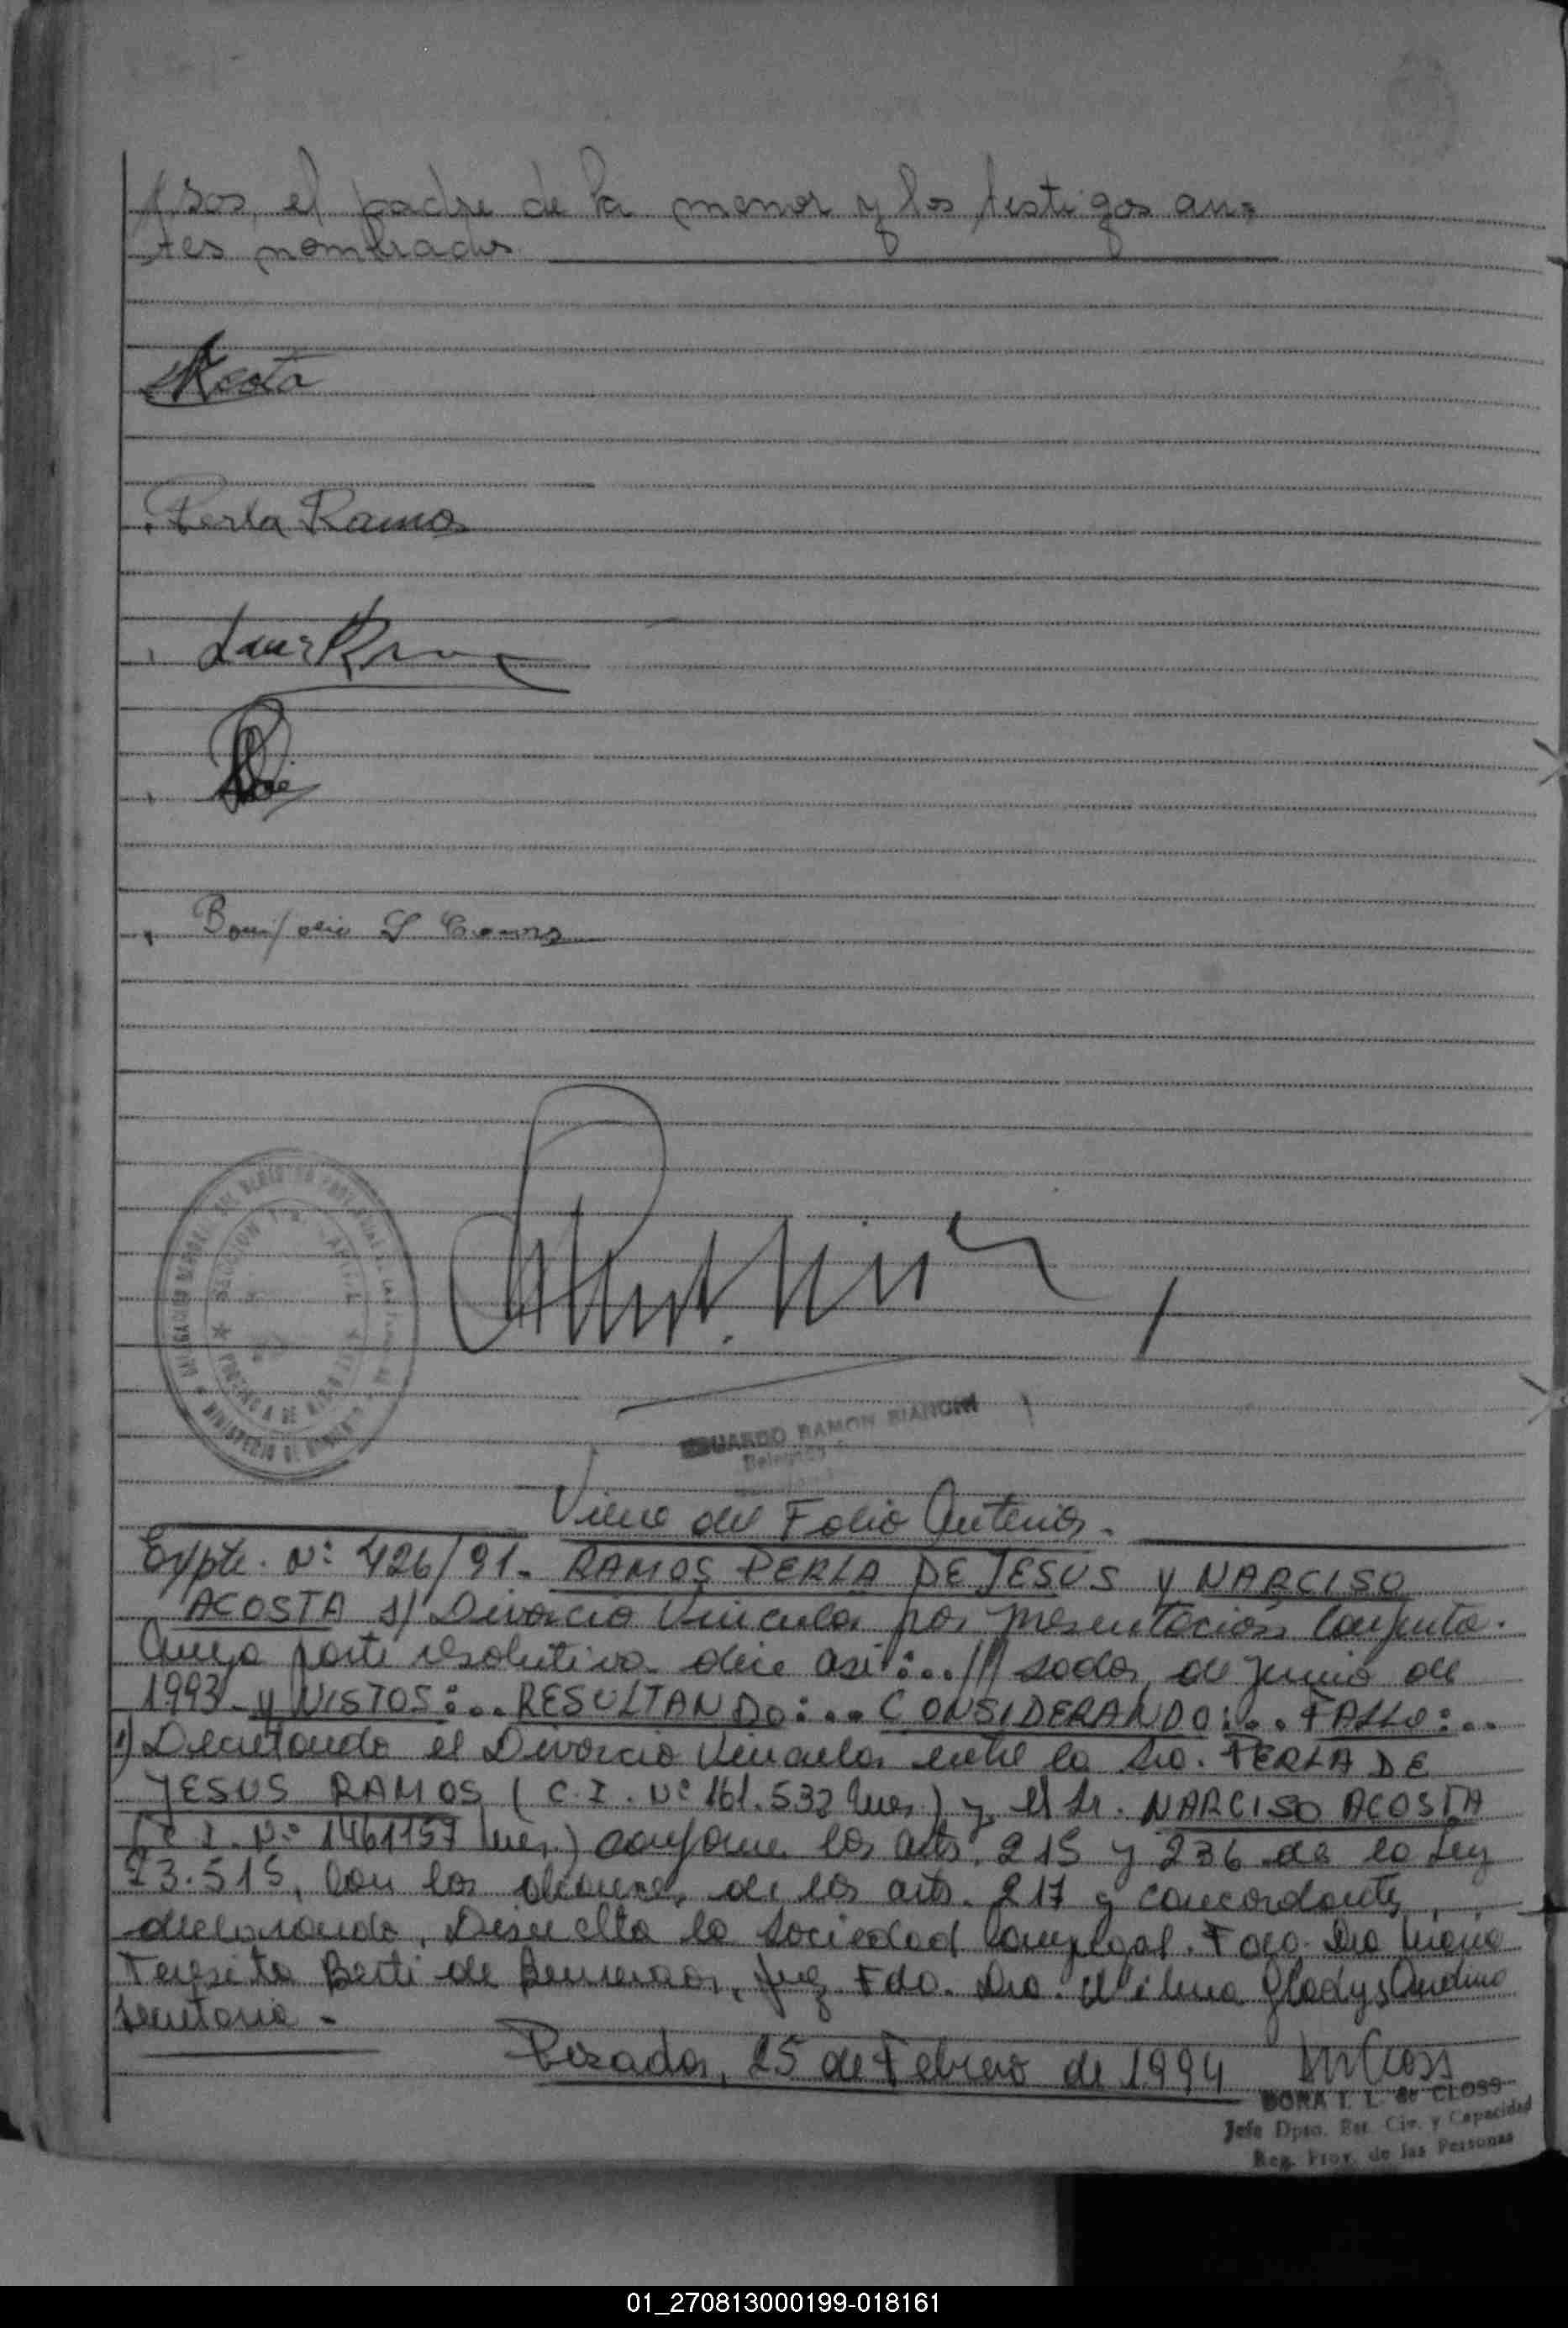 sos, el padre de la menor y los testigos an=
tes nombrados
Acosta
Perla Ramos
EDUARDO RAMON BIANCHI
Viene del Folio Anterior.
Expte. Nº 426/91. RAMOS PERLA DE JESUS y NARCISO
ACOSTA s/ Divorcio Vincular por presentación Conjunta.
Cuya parte resolutiva dice asi:../// sadas, de junio de
1993 - y VISTOS:.. RESULTANDO:... CONSIDERANDO:... FALLO:..
1) Decretando el Divorcio Vincular entre la Sra. PERLA DE
JESUS RAMOS (C.I. Nº 161.532 Mnes) y el Sr. NARCISO ACOSTA
(C.I. Nº 1461157 Mnes.) conforme los arts. 215 y 236 de la Ley
23.515, con los alcances de los arts. 217 y concordantes,
declarando, Disuelta la Sociedad Conyugal. Fdo. Dra Maria
Teresita Berti de , Juez. Fdo. Dra. Vilma Gladys Andino
Secretaria -
Posadas, 25 de Febrero de 1994
DORA T. L. de CLOSS
Jefe Dpto. Est. Civ. y Capacidad
Reg. Prov. de las Personas
01_270813000199-018161